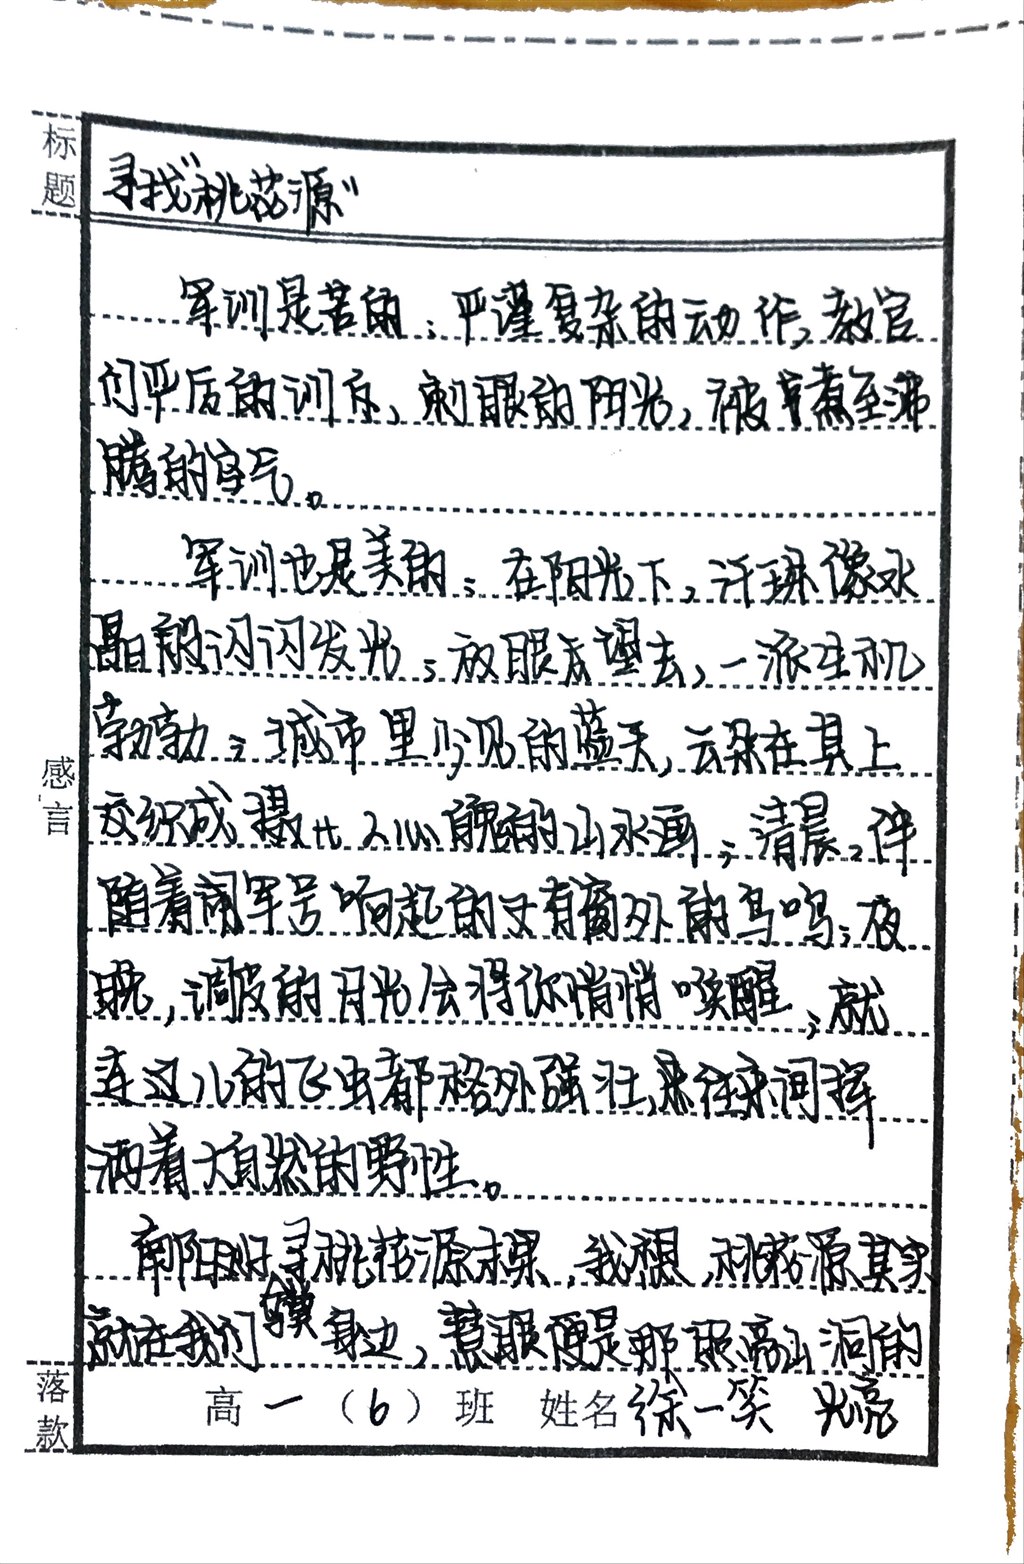 标题
寻找“桃花源”
军训是苦的；严谨复杂的动作，教官
们严厉的训斥，刺眼的阳光，被烹煮至沸
腾的空气。
军训也是美的；在阳光下，汗珠像水
晶般闪闪发光；放眼望去，一派生机
勃勃；城市里少见的蓝天，云朵在其上
交织成摄人心魄的山水画；清晨，伴
随着军号响起的又有窗外的鸟鸣；夜
晚，调皮的月光会将你悄悄唤醒；就
连这儿的飞虫都格外强壮，来往间挥
洒着大自然的野性。
南阳刘子骥寻桃花源未果，我想，桃花源其实
就在我们身边，慧眼便是那照亮山洞的
光亮
感言
落款
高一（6）班 姓名 徐一笑